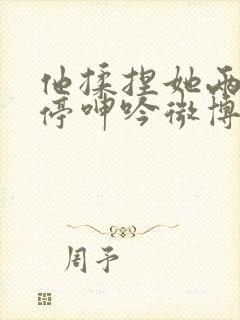 他揉捏她两
停呻吟微博
周予